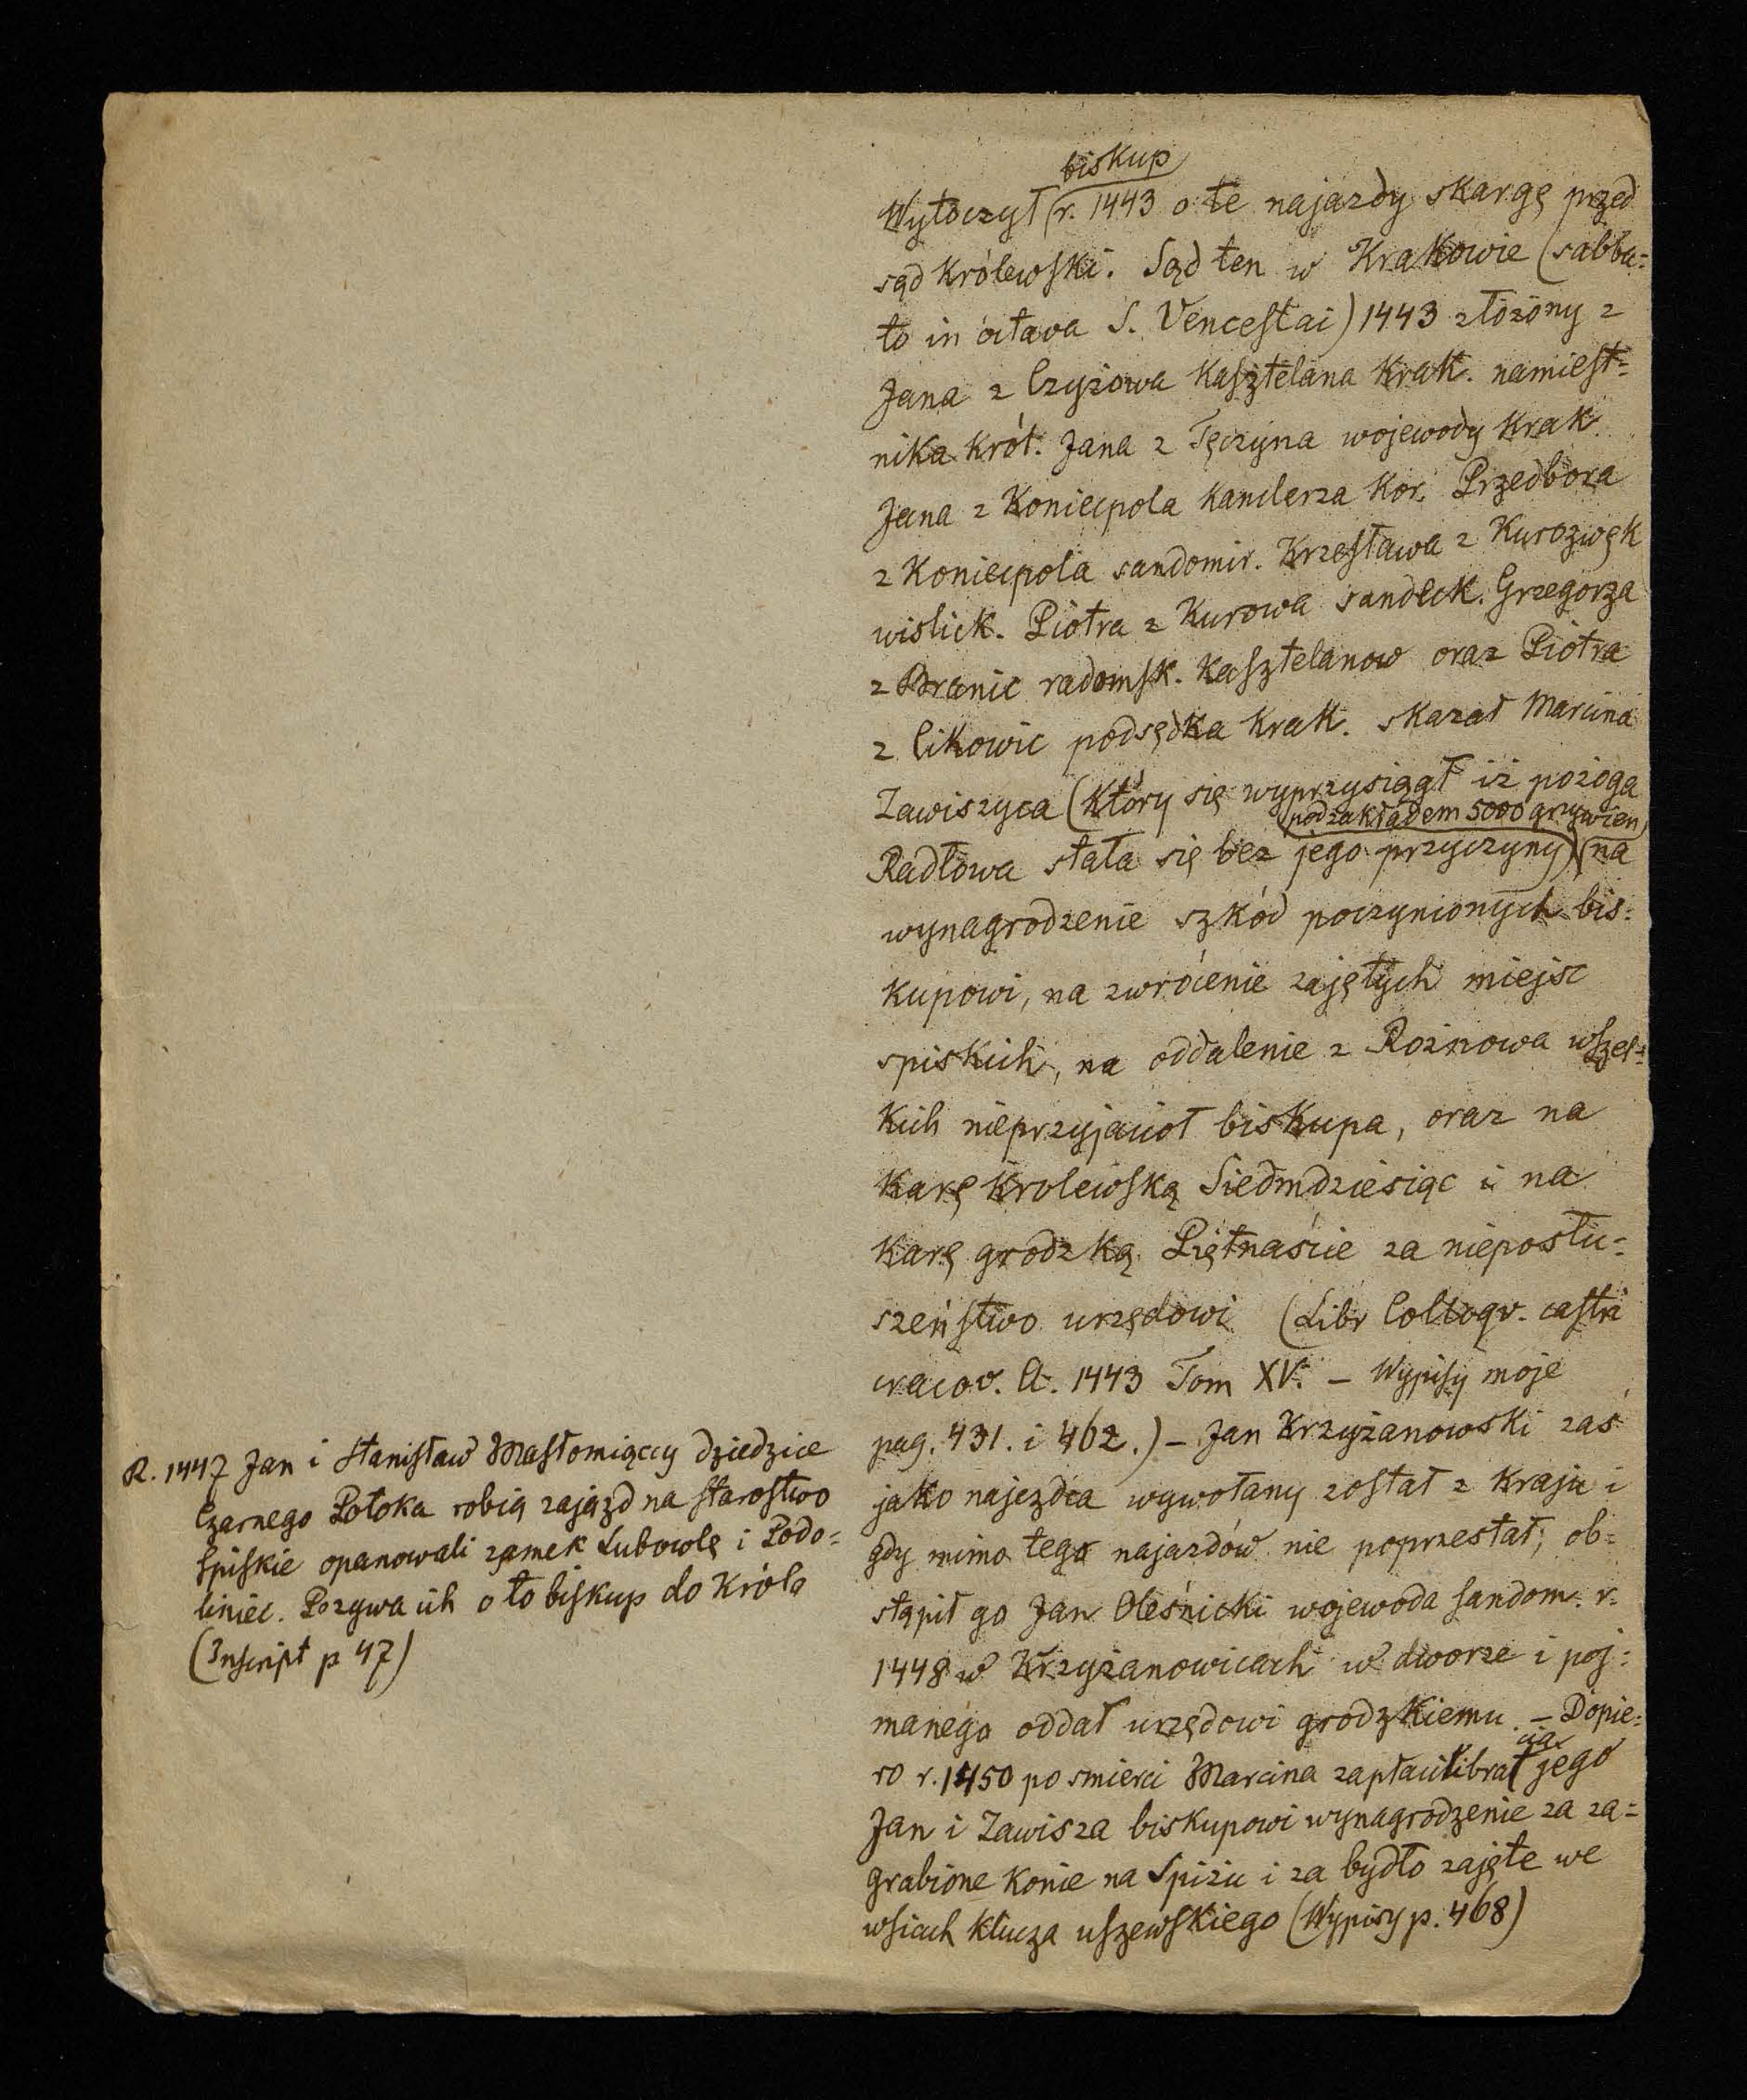 biskup
Wytoczył r. 1443 o te najazdy skargę przed
sąd królewski. Sąd ten w Krakowie (sabba=
to in octava S. Venceslai) 1443 złożony z
Jana z Czyżowa kasztelana krak. namiest=
nika król. Jana z Tęczyna wojewody krak.
Jana z Koniecpola kanclerza kor. Przedbora
z Koniecpola sandomir. Krzesława z Kurozwęk
wislick. Piotra z Kurowa sandeck. Grzegorza
z Branic radomsk. kasztelanow oraz Piotra
z Cikowic podsędka krak. skazał Marcina
Zawiszyca (który się wyprzysiągł iż pożoga
pod zakładem 5000 grzywien
Radłowa stała się bez jego przyczyny) na
wynagrodzenie szkód poczynionych bis=
kupowi, na zwrócenie zajętych miejsc
spiskich, na oddalenie z Rożnowa wszel=
kich nieprzyjaciół biskupa, oraz na
karę krolewską Siedmdziesiąc i na
karę grodzką Piętnaście za nieposłu=
szeństwo urzędowi (Libr Colloqv. castri
cracov. A. 1443 Tom XV. – Wypisy moje
pag. 431. i 462.) – Jan Krzyżanowski zaś
jako najezdca wywołany został z kraju i
gdy mimo tego najazdów nie poprzestał, ob=
stąpił go Jan Oleśnicki wojewoda sandom. r.
1448 w Krzyżanowicach w dworze i poj=
manego oddał urzędowi grodzkiemu. – Dopie=
cia
ro r. 1450 po smierci Marcina zapłacili bra jego
Jan i Zawisza biskupowi wynagrodzenie za za=
grabione konie na Spiżu i za bydło zajęte we
wsiach klucza uszewskiego (Wypisy p. 468)
R. 1447 Jan i Stanisław Masłomiąccy dziedzice
Czarnego Potoka robią zajazd na starostwo
Spiskie opanowali zamek Lubowlę i Podo=
liniec. Pozywa ich o to biskup do króla
(Inscript p 47)